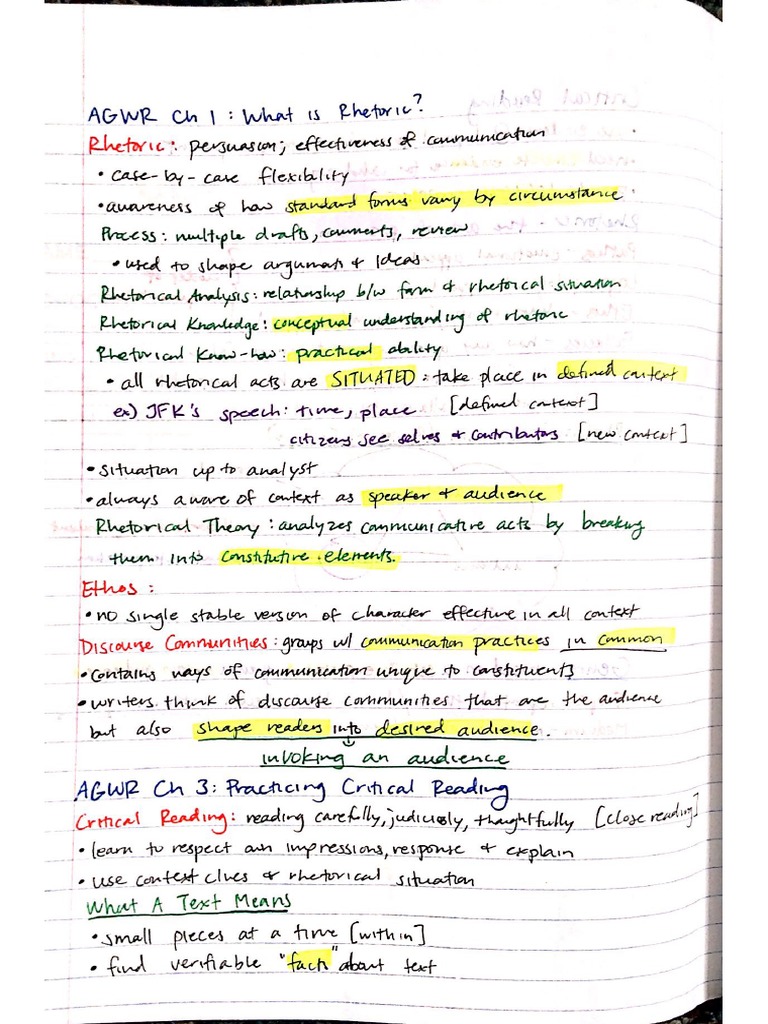 AGWR Ch 1: What is Rhetoric?
Rhetoric: persuasion; effectiveness of communication
• case-by-case flexibility
• awareness of how standard forms vary by circumstance
Process: multiple drafts, comments, review
• used to shape arguments & ideas
Rhetorical Analysis: relationship b/w form & rhetorical situation
Rhetorical Knowledge: conceptual understanding of rhetoric
Rhetorical Know-how: practical ability
• all rhetorical acts are SITUATED: take place in defined context
ex) JFK's speech: time, place [defined context]
citizens see selves & contributors [new context]
• situation up to analyst
• always aware of context as speaker & audience
Rhetorical Theory: analyzes communicative acts by breaking
them into constitutive elements.
Ethos:
• no single stable version of character effective in all context
Discourse Communities: groups w/ communication practices in common
• contains ways of communication unique to constituents
• writers think of discourse communities that are the audience
but also shape readers into desired audience.
invoking an audience
AGWR Ch 3: Practicing Critical Reading
Critical Reading: reading carefully, judiciously, thoughtfully [close reading]
• learn to respect own impressions, response & explain
• use context clues & rhetorical situation
What A Text Means
• small pieces at a time [within]
• find verifiable "facts" about text